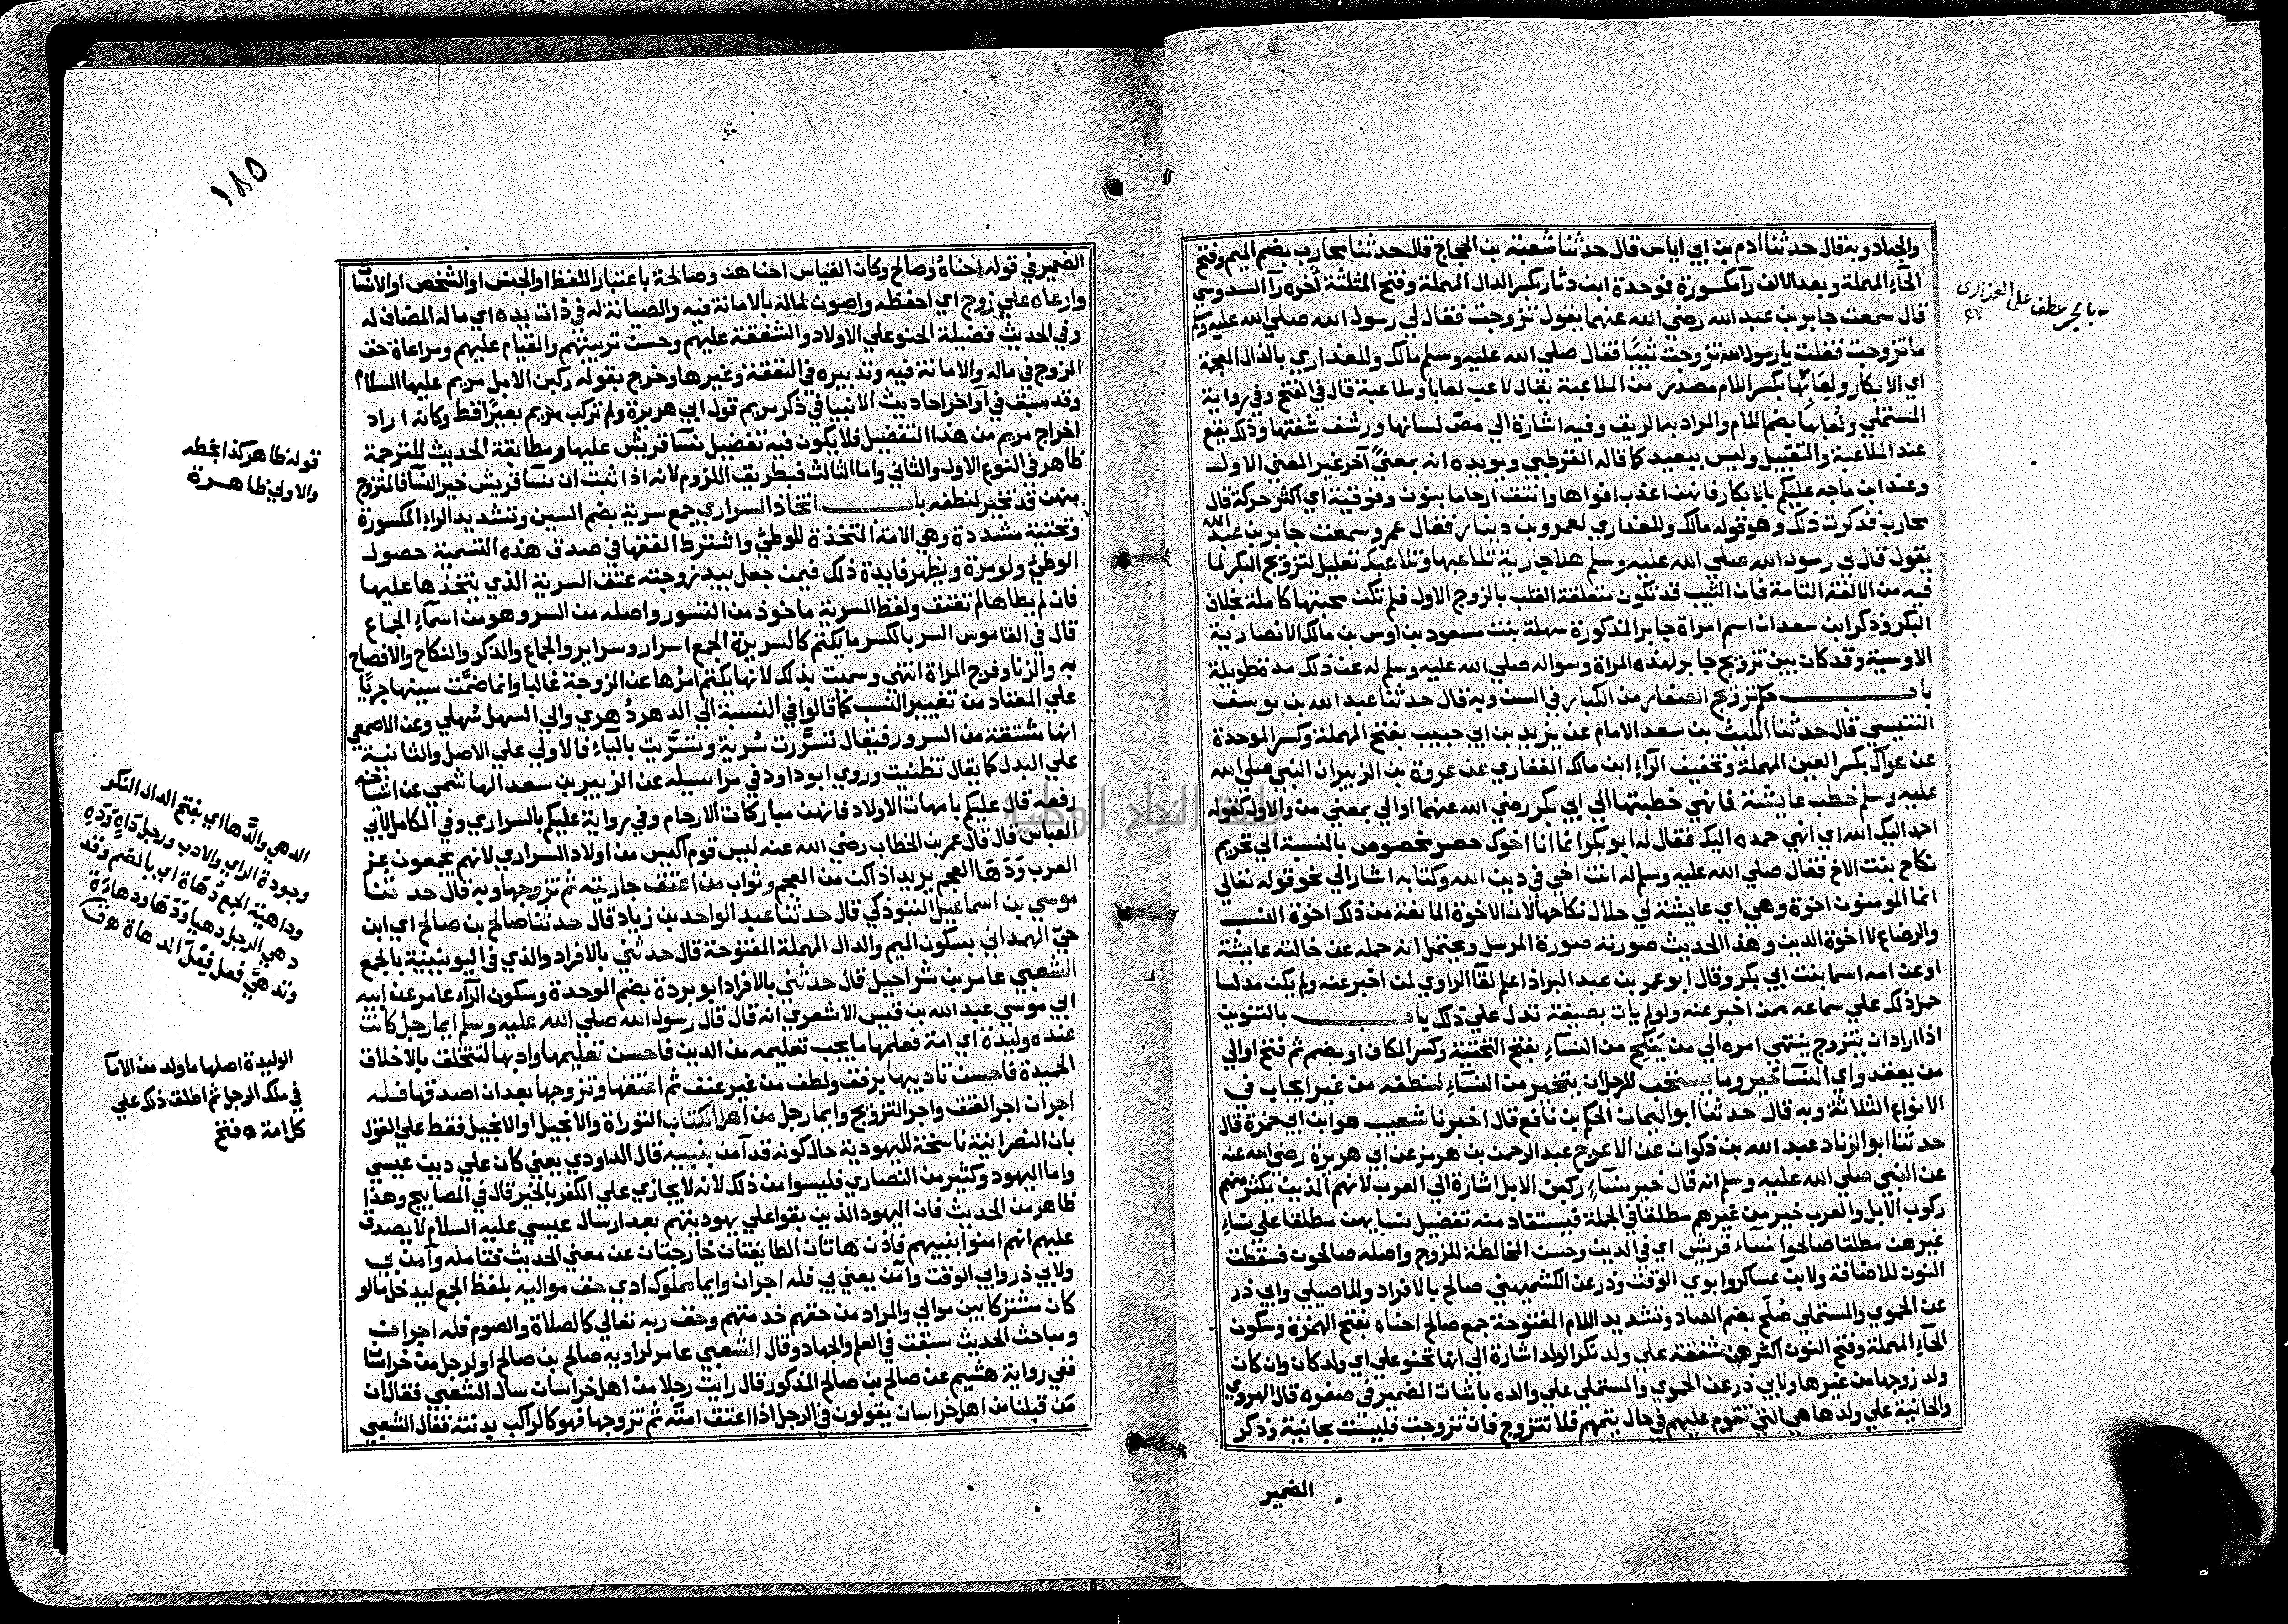 والجهاد وبه قال حدثنا آدم بن ابي اياس قال حدثنا شعبة بن الحجاج قال حدثنا محارب بضم الميم وفتح
الحاء المهملة وبعد الالف رآ مكسورة فموحدة ابن دثار بكسر الدال المهملة وفتح المثلثة آخره رآ السدوسي
قال سمعت جابر بن عبد الله رضي الله عنهما يقول تزوجت فقال لي رسول الله صلي الله عليه وسلم
ما تزوجت فقلت يا رسول الله تزوجت ثيبا فقال صلي الله عليه وسلم مالك وللعذاري بالذال المعجمة
اي الابكار ولعابها بكسر اللام مصدر من الملاعبة يقال لاعب لعابا وملاعبة قال في الفتح وفي رواية
المستملي ولعابها بضم اللام والمراد به الريق وفيه اشارة الي مص لسانها ورشف شفتها وذلك يقع
عند الملاعبة والتقبيل وليس ببعيد كما قاله القرطبي ويويده انه بمعني آخر غير المعني الاول
وعند ابن ماجه عليكم بالابكار فانهن اعذب افواها وانتق ارحاما بنون وفوقية اي اكثر حركة قال
محارب فذكرت ذلك وهو قوله مالك وللعذاري لعمرو بن دينار فقال عمرو سمعت جابر بن عبد الله
يقول قال لي رسول الله صلي الله عليه وسلم هلا جارية تلاعبها وتلاعبك تعليل لتزويج البكر لما
فيه من الالفة التامة فان الثيب قد تكون متعلقة القلب بالزوج الاول فلم تكن محبتها كاملة بخلاف
البكر وذكر ابن سعد ان اسم امراة جابر المذكورة سهلة بنت مسعود بن اوس بن مالك الانصارية
الاوسية وقد كان بين تزويج جابر لهذه المراة وسواله صلي الله عليه وسلم له عن ذلك مدة طويلة
باب حكم تزويج الصغار من الكبار في السن وبه قال حدثنا عبد الله بن يوسف
التنيسي قال حدثنا الليث بن سعد الامام عن يزيد بن ابي حبيب بفتح المهملة وكسر الموحدة
عن عراك بكسر العين المهملة وتخفيف الرآء ابن مالك الغفاري عن عروة بن الزبير ان النبي صلي الله
عليه وسلم خطب عايشة فانهي خطبتها الي ابي بكر رضي الله عنهما او الي بمعني من والاول كقوله
احمد اليك الله اي انهي حمده اليك فقال له ابو بكر انما انا اخوك حصر مخصوص بالنسبة الي تحريم
نكاح بنت الاخ فقال صلي الله عليه وسلم له انت اخي في دين الله وكتابه اشار الي نحو قوله تعالي
انما المومنون اخوة وهي اي عايشة لي حلال نكاحها لان الاخوة المانعة من ذلك اخوة النسب
والرضاع لا اخوة الدين وهذا الحديث صورته صورة المرسل ويحتمل انه حمله عن خالته عايشة
او عن امه اسما بنت ابي بكر وقال ابو عمر بن عبد البر اذا علم لقآ الراوي لمن اخبر عنه ولم يكن مدلسا
حمل ذلك علي سماعه ممن اخبر عنه ولو لم يات بصيغة تدل علي ذلك باب بالتنوين
اذا اراد ان يتزوج ينتهي امره الي من ينكح من النساء بفتح التحتية وكسر الكاف او بضم ثم فتح او الي
من يعقد واي النسآ خير وما يستحب للرجل ان يتخير من النسآء لنطفه من غير ايجاب في
الانواع الثلاثة وبه قال حدثنا ابو اليمان الحكم بن نافع قال اخبرنا شعيب هو ابن ابي حمزة قال
حدثنا ابو الزناد عبد الله بن ذكوان عن الاعرج عبد الرحمن بن هرمز عن ابي هريرة رضي الله عنه
عن النبي صلي الله عليه وسلم انه قال خير نسآء ركبن الابل اشارة الي العرب لانهم الذين يكثر منهم
ركوب الابل والعرب خير من غيرهم مطلقا في الجملة فيستفاد منه تفضيل نسايهن مطلقا علي نساء
غيرهن مطلقا صالحوا نسآء قريش اي في الدين وحسن المخالطة للزوج واصله صالحون فسقطت
النون للاضافة ولابن عساكر وابوي الوقت وذر عن الكشميهني صالح بالافراد وللاصيلي وابي ذر
عن الحموي والمستملي صلح بضم الصاد وتشديد اللام المفتوحة جمع صالح احناه بفتح الهمزة وسكون
الحآء المهملة وفتح النون اكثرهن شفقة علي ولد نكر الولد اشارة الي انها تحنو علي اي ولد كان وان كان
ولد زوجها من غيرها ولابي ذر عن الحموي والمستملي علي ولده باثبات الضمير في صغره قال الهروي
والحانية علي ولدها هي التي تقوم عليهم في حال يتمهم فلا تتزوج فان تزوجت فليست بحانية وذكر
الضمير
بالجر عطف علي العذاري
١٨٥
الضمير في قوله احناه وصالح وكان القياس احناهن وصالحة باعتبار اللفظ او الجنس او الشخص او الانسان
وارعاه علي زوج اي احفظه واصون لماله بالامانة فيه والصيانة له في ذات يده اي ماله المضاف له
وفي الحديث فضيلة الحنو علي الاولاد والشفقة عليهم وحسن تربيتهم والقيام عليهم ومراعاة حق
الزوج في ماله والامانة فيه وتدبيره في النفقة وغيرها وخرج بقوله ركبن الابل مريم عليها السلام
وقد سبق في آواخر احاديث الانبيا في ذكر مريم قول ابي هريرة ولم تركب مريم بعيرا قط وكانه اراد
اخراج مريم من هذا التفضيل فلا يكون فيه تفضيل نسآ قريش عليها ومطابقة الحديث للترجمة
ظاهر في النوع الاول والثاني واما الثالث فبطريق اللزوم لانه اذا ثبت ان نسآ قريش خير النسآ فالمتزوج
منهن قد تخير لنطفه باب اتخاذ السراري جمع سرية بضم السين وتشديد الراء المكسورة
وتحتية مشددة وهي الامة المتخذة للوطئ واشترط الفقها في صدق هذه التسمية حصول
الوطئ ولو مرة ويظهر فايدة ذلك فيمن جعل بيد زوجته عتق السرية الذي يتخذها عليها
فان لم يطاها لم تعتق ولفظ السرية ماخوذ من التسرر واصله من السر وهو من اسمآء الجماع
قال في القاموس السر بالكسر ما يكتم كالسريرة الجمع اسرار وسراير والجماع والذكر والنكاح والافصاح
به والزنا وفرج المراة انتهي وسميت بذلك لانها يكتم امرها عن الزوجة غالبا وانما ضمت سينها جريا
علي المعتاد من تغيير النسب كما قالوا في النسبة الي الدهر دهري والي السهل سهلي وعن الاصمعي
انها مشتقة من السرور فيقال تسررت سرية وتسريت بالياء فالاولي علي الاصل والثانية
علي البدل كما يقال تظنيت وروي ابو داود في مراسيله عن الزبير بن سعد الهاشمي عن اشياخه
رفعه قال عليكم بامهات الاولاد فانهن مباركات الارحام وفي رواية عليكم بالسراري وفي الكامل لابي
العباس قال قال عمر بن الخطاب رضي الله عنه ليس قوم اكيس من اولاد السراري لانهم يجمعون عز
العرب ودها العجم يريد اذا كن من العجم وثواب من اعتق جاريته ثم تزوجها وبه قال حدثنا
موسي بن اسماعيل التبوذكي قال حدثنا عبد الواحد بن زياد قال حدثنا صالح بن صالح اي ابن
حي الهمداني بسكون الميم والدال المهملة المفتوحة قال حدثني بالافراد والذي في اليونينية بالجمع
الشعبي عامر بن شراحيل قال حدثني بالافراد ابو بردة بضم الموحدة وسكون الرآء عامر عن ابيه
ابي موسي عبد الله بن قيس الاشعري انه قال قال رسول الله صلي الله عليه وسلم ايما رجل كانت
عنده وليدة اي امة فعلمها ما يجب تعليمه من الدين فاحسن تعليمها وادبها لتتخلق بالاخلاق
الحميدة فاحسن تاديبها برفق ولطف من غير عنف ثم اعتقها وتزوجها بعد ان اصدقها فله
اجران اجر العتق واجر التزويج وايما رجل من اهل الكتاب التوراة والانجيل او الانجيل فقط علي القول
بان النصرانية ناسخة لليهودية حال كونه قد آمن بنبيه قال الداودي يعني كان علي دين عيسي
واما اليهود وكثير من النصاري فليسوا من ذلك لانه لا يجازي علي الكفر بالخير قال في المصابيح وهذا
ظاهر من الحديث فان اليهود الذين بقوا علي يهوديتهم بعد ارسال عيسي عليه السلام لا يصدق
عليهم انهم امنوا بنبيهم فاذن هاتان الطايفتان خارجتان عن معني الحديث فتامله وآمن بي
ولابي ذر وابي الوقت وآمن يعني بي فله اجران وايما مملوك ادي حق مواليه بلفظ الجمع ليدخل ما لو
كان مشتركا بين موالي والمراد من حقهم خدمتهم وحق ربه تعالي كالصلاة والصوم فله اجران
ومباحث الحديث سبقت في العلم والجهاد وقال الشعبي عامر لراويه صالح بن صالح او لرجل من خراسان
ففي رواية هشيم عن صالح بن صالح المذكور قال رايت رجلا من اهل خراسان سال الشعبي فقال ان
من قبلنا من اهل خراسان يقولون في الرجل اذا اعتق امته ثم تزوجها فهو كالراكب بدنته فقال الشعبي
قوله ظاهر كذا بخطه
والاولي ظاهرة
الدهي والدها اي بفتح الدال النكر
وجودة الراي والادب ورجل داه وده
وداهية الجمع دهاة اي بالضم وقد
دهي الرجل دهيا ودها ودهاة
وتدهي فعل فعل الدهاة
الوليدة اصلها ما ولد من الاما
في ملك الرجل ثم اطلق ذلك علي
كل امة فتح
جامعة النجاح الوطنية